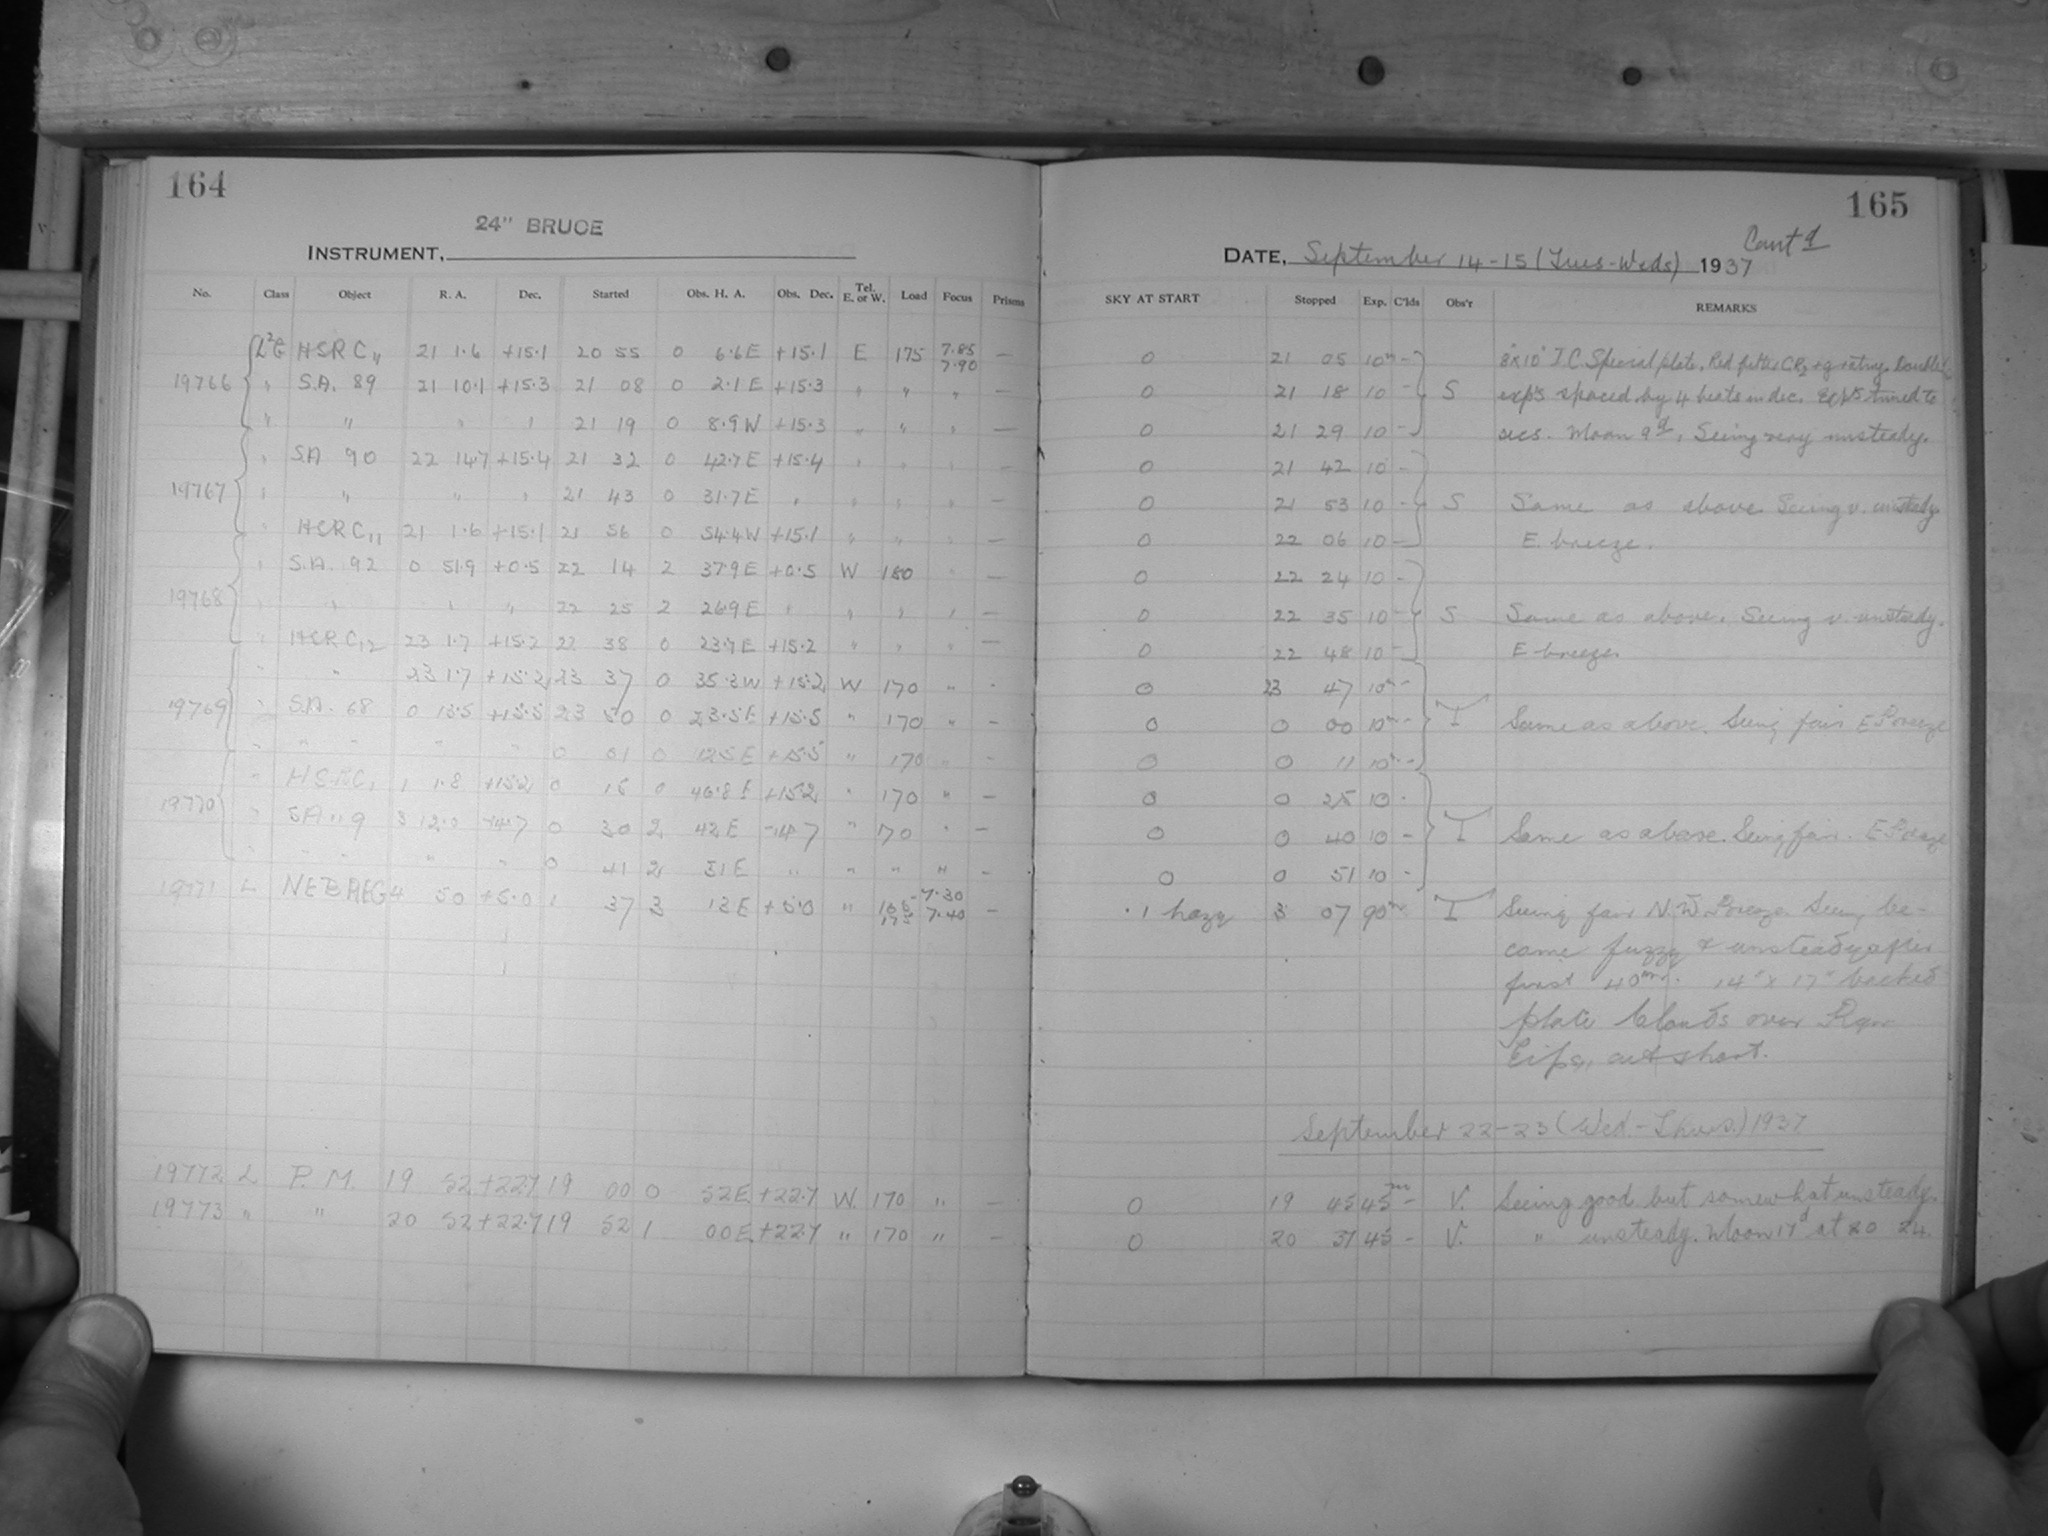 164
24" BRUCE
INSTRUMENT,
No. Class Object R. A. Dec. Started Obs. H. A. Obs. Dec. Tel. E. or W. Load Focus Prisms
HSRC11 21 1.6 +15.1 20 55 0 6.6E +15.1 E 175 7.85 7.90 —
19766 " S.A. 89 21 10.1 +15.3 21 08 0 2.1E +15.3 " " " -
" " " " 21 19 0 8.9W +15.3 " " " —
" SA 90 22 14.7 +15.4 21 32 0 42.7E +15.4 " " " —
19767 " " " " 21 43 0 31.7E " " " " —
" HSRC11 21 1.6 +15.1 21 56 0 54.4W +15.1 " " " —
" S.A. 92 0 51.9 +0.5 22 14 2 37.9E +0.5 W 180 " —
19768 " " " " 22 25 2 26.9E " " " " —
" HSRC12 23 1.7 +15.2 22 38 0 23.7E +15.2 " " " —
" " 23 1.7 +15.2 23 37 0 35.3W +15.2 W 170 " -
19769 " S.A. 68 0 15.5 +15.5 23 50 0 23.5E +15.5 " 170 " —
" " " " 0 01 0 12.5E +15.5 " 170 " —
" HSRC1 1 1.8 +15.2 0 15 0 46.8E +15.2 " 170 " —
19770 " 3 12.0 -14.7 0 30 2 42E -14.7 " 170 " —
" " " " 0 41 2 31E " " " " —
19771 L 4 50 +5.0 1 37 3 13E +5.0 " 7.30 7.40 —
19772 L P. M. 19 52 +22.7 19 00 0 52E +22.7 W. 170 " —
19773 " " 20 52 +22.7 19 52 1 00E +22.7 " 170 " —
165
Cont'd
DATE, September 14-15 (Tues-Weds) 1937
SKY AT START Stopped Exp. C'lds Obs'r REMARKS
0 21 05 10m - 8"x10" I.C. Special plate, Red filter CR2 + grating. Double
0 21 18 10 - S exp's spaced by 4 beats in dec. Exp's timed to
0 21 29 10 - secs. Moon 9d, Seeing very unsteady.
0 21 42 10 -
0 21 53 10 - S Same as above. Seeing v. unsteady
0 22 06 10 - E. breeze.
0 22 24 10 -
0 22 35 10 - S Same as above. Seeing v unsteady.
0 22 48 10 - E breeze.
0 23 47 10m -
0 0 00 10m - T Same as above. Seeing fair E Breeze
0 0 11 10m -
0 0 25 10 -
0 0 40 10 - T Same as above. Seeing fair. E Breeze
0 0 51 10 -
.1 hazy 3 07 90m T Seeing fair N.W. Breeze. Seeing be-
came fuzzy & unsteady after
first 40m. 14" x 17" backed
plate Clouds over
cut short.
September 22-23 (Wed.-Thurs.) 1937
0 19 45 45m - V. Seeing good but somewhat unsteady.
0 20 37 45 - V. " unsteady. Moon 17d at 20 24.